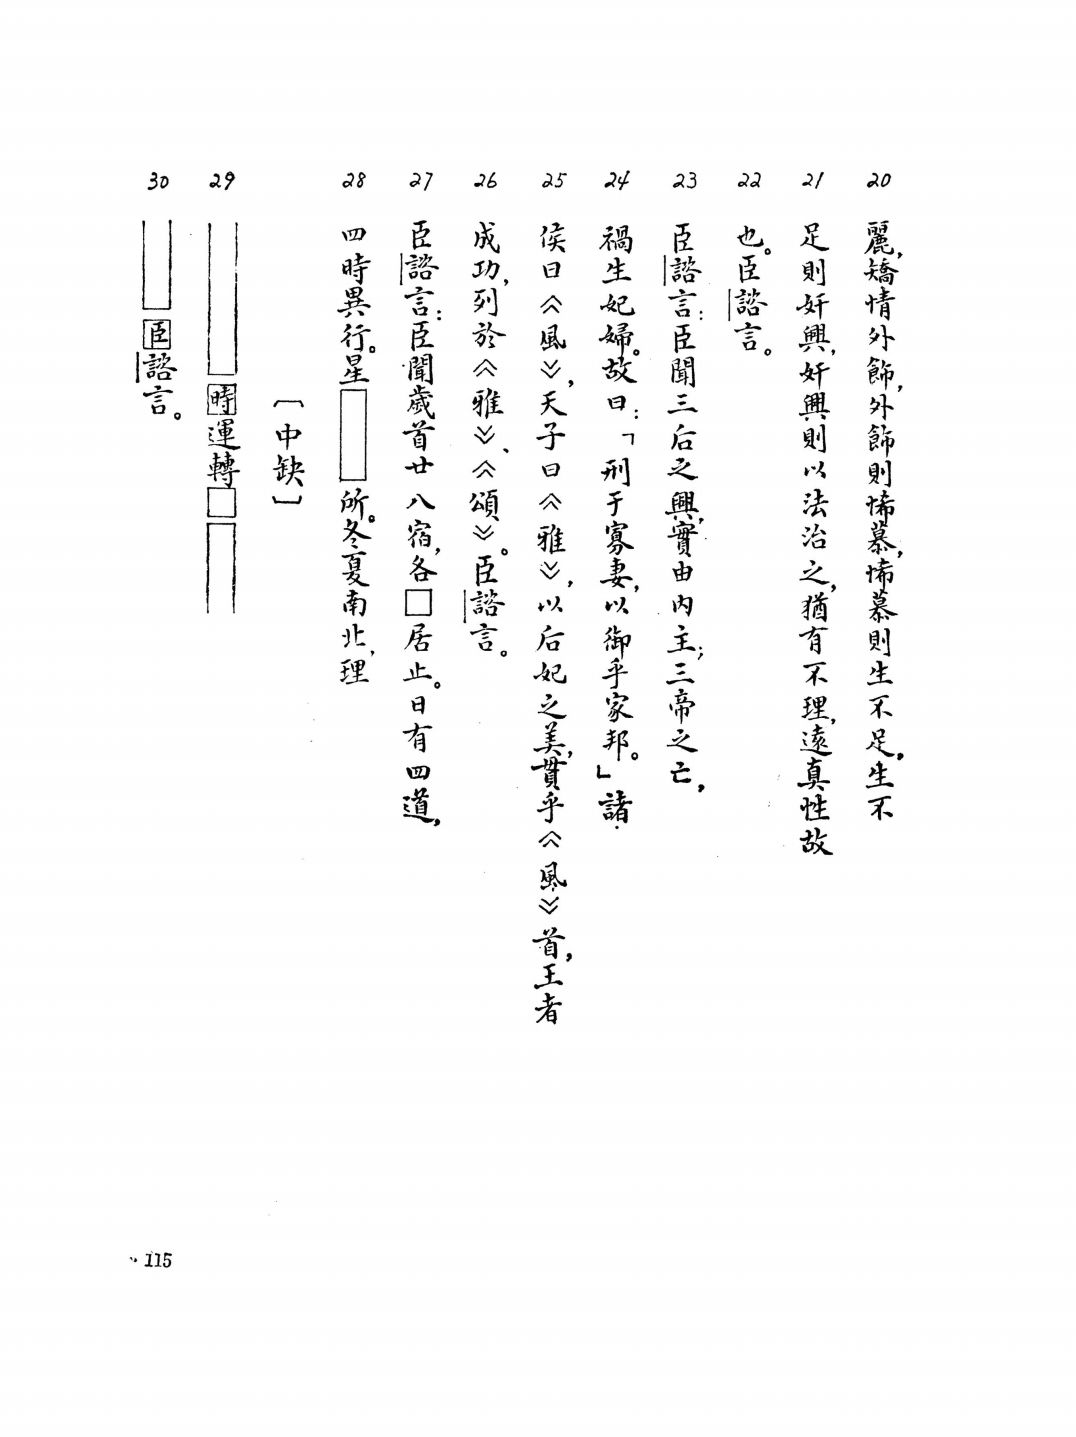 20 麗，矯情外飾，外飾則悕慕，悕慕則生不足，生不
21 足則奸興，奸興則以法治之，猶有不理，遠真性故
22 也。臣諮言。
23 臣諮言：臣聞三后之興，實由內主；三帝之亡，
24 禍生妃婦。故曰：「刑于寡妻，以御乎家邦。」諸
25 侯曰《風》，天子曰《雅》，以后妃之美，貫乎《風》首，王者
26 成功，列於《雅》、《頌》。臣諮言。
27 臣諮言：臣聞歲首廿八宿，各□居止。日有四道，
28 四時異行。星 所。冬夏南北，理
〔中缺〕
29 時運轉□
30 臣諮言。
115